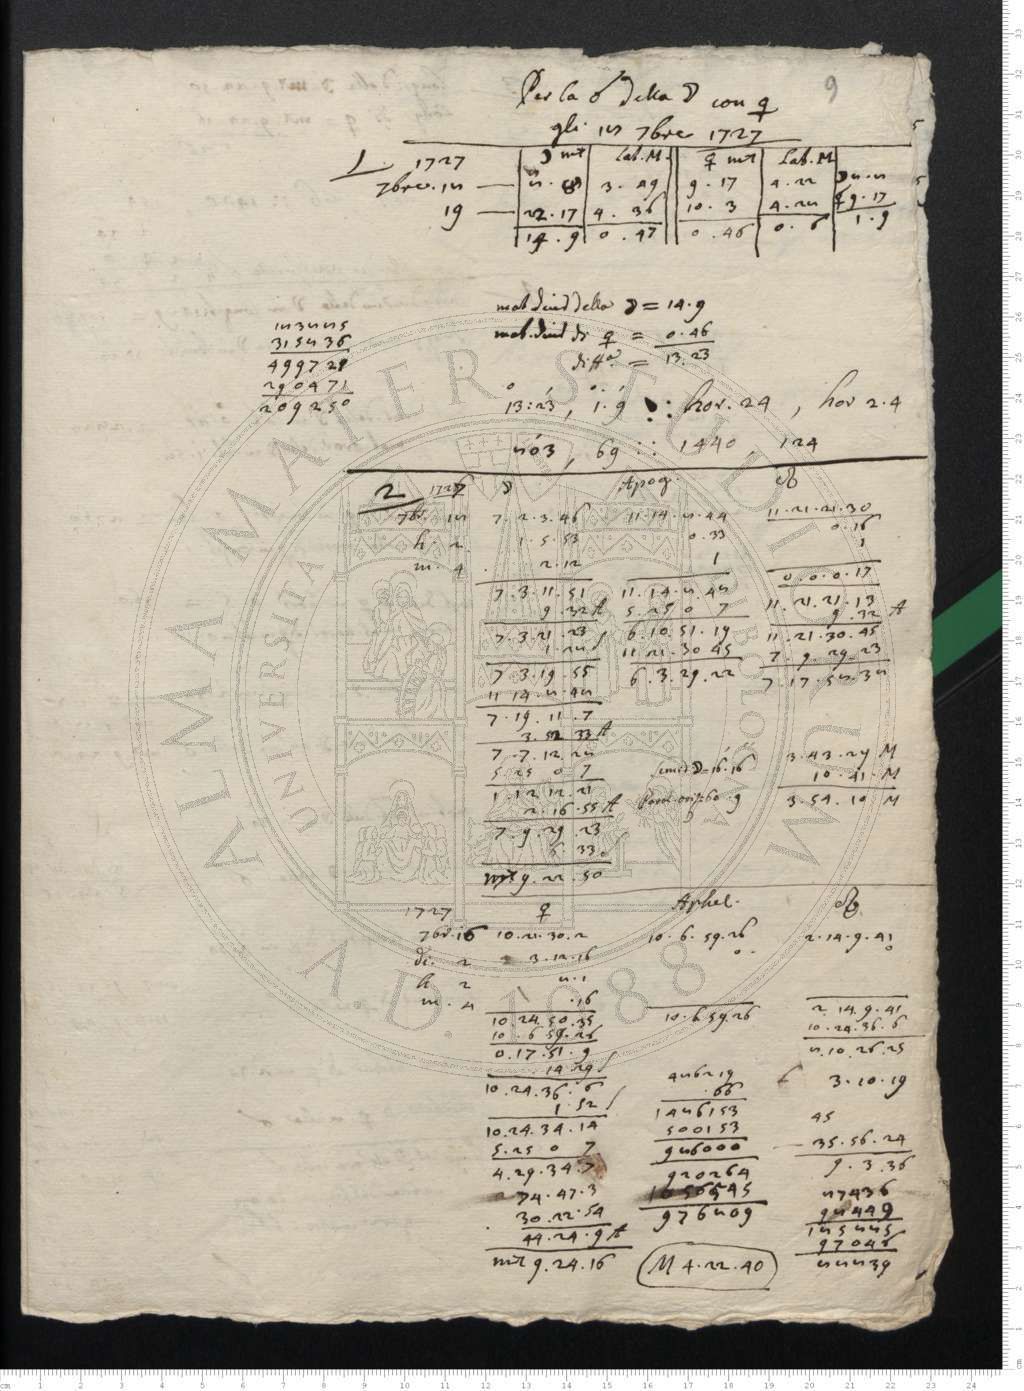 9
Per la ☌ della ☽ con ☿
gli 18 7bre 1727
1. 1727 ☽ mt Lat. M. ☿ mt Lat. M
7bre. 18 8. 8 3. 49 9. 17 4. 22 ☽ 8. 8
19 22. 17 4. 36 10. 3 4. 28 ☿ 9. 17
14. 9 0. 47 0. 46 0. 6 1. 9
mot diurd della ☽ = 14. 9
mot. diud di ☿ = 0. 46
diffa = 13. 23
315836
499728
290471
209250
13:23, 1. 9 :: hor. 24, hor 2. 4
803, 69 :: 1440, 124
2 1727 ☽ Apog. ☊
7br. 18 7. 2. 3. 46 11. 14. 8. 44 11. 21. 21. 30
h. 2 1. 5. 53 0. 33 0. 16
m. 4 2. 12 1 1
7. 3. 11. 51 11. 14. 8. 48 0. 0. 0. 17
9. 32 A 5. 25 0 7 11. 21. 21. 13
7. 3. 21. 23 6. 10. 51. 19 9. 32 A
1. 28 11. 21. 30. 45 11. 21. 30. 45
7. 3. 19. 55 6. 3. 29. 22 7. 9. 29. 23
11. 14. 8. 48 7. 17. 58. 38
7. 19. 11. 7
3. 52 33 A
7. 7. 12. 28 3. 43. 29 M
5. 25 0 7 ☽ 16. 16 10. 41. M
1. 12. 12. 21 3. 54. 10 M
2. 16. 55 A
7. 9. 29. 23
6. 33
mt 9. 22. 50
1727 ☿ Aphel. ☊
7br. 16 10. 21. 30. 2 10. 6. 59. 26 2. 14. 9. 41
di. 2 3. 12. 16 0. 0
h 2 8. 1
m. 4 . 16
10. 24. 50. 35 10. 6. 59. 26 2. 14. 9. 41
10. 6. 59. 26 10. 24. 36. 6
0. 17. 51. 9 8. 10. 26. 25
14. 29
10. 24. 36. 6 486219 3. 10. 19
1. 52 . 66
10. 24. 34. 14 1486153 45
5. 25 0 7 500153 35. 56. 24
4. 29. 34. 7 986000 9. 3. 36
74. 47. 3 920264 87436
30. 22. 54 1056545 98449
44. 24. 9 A 976809 185885
mt 9. 24. 16 M 4. 22. 40 97046
88839
ALMA MATER STUDIORUM
UNIVERSITÀ DI BOLOGNA
A.D. 1088